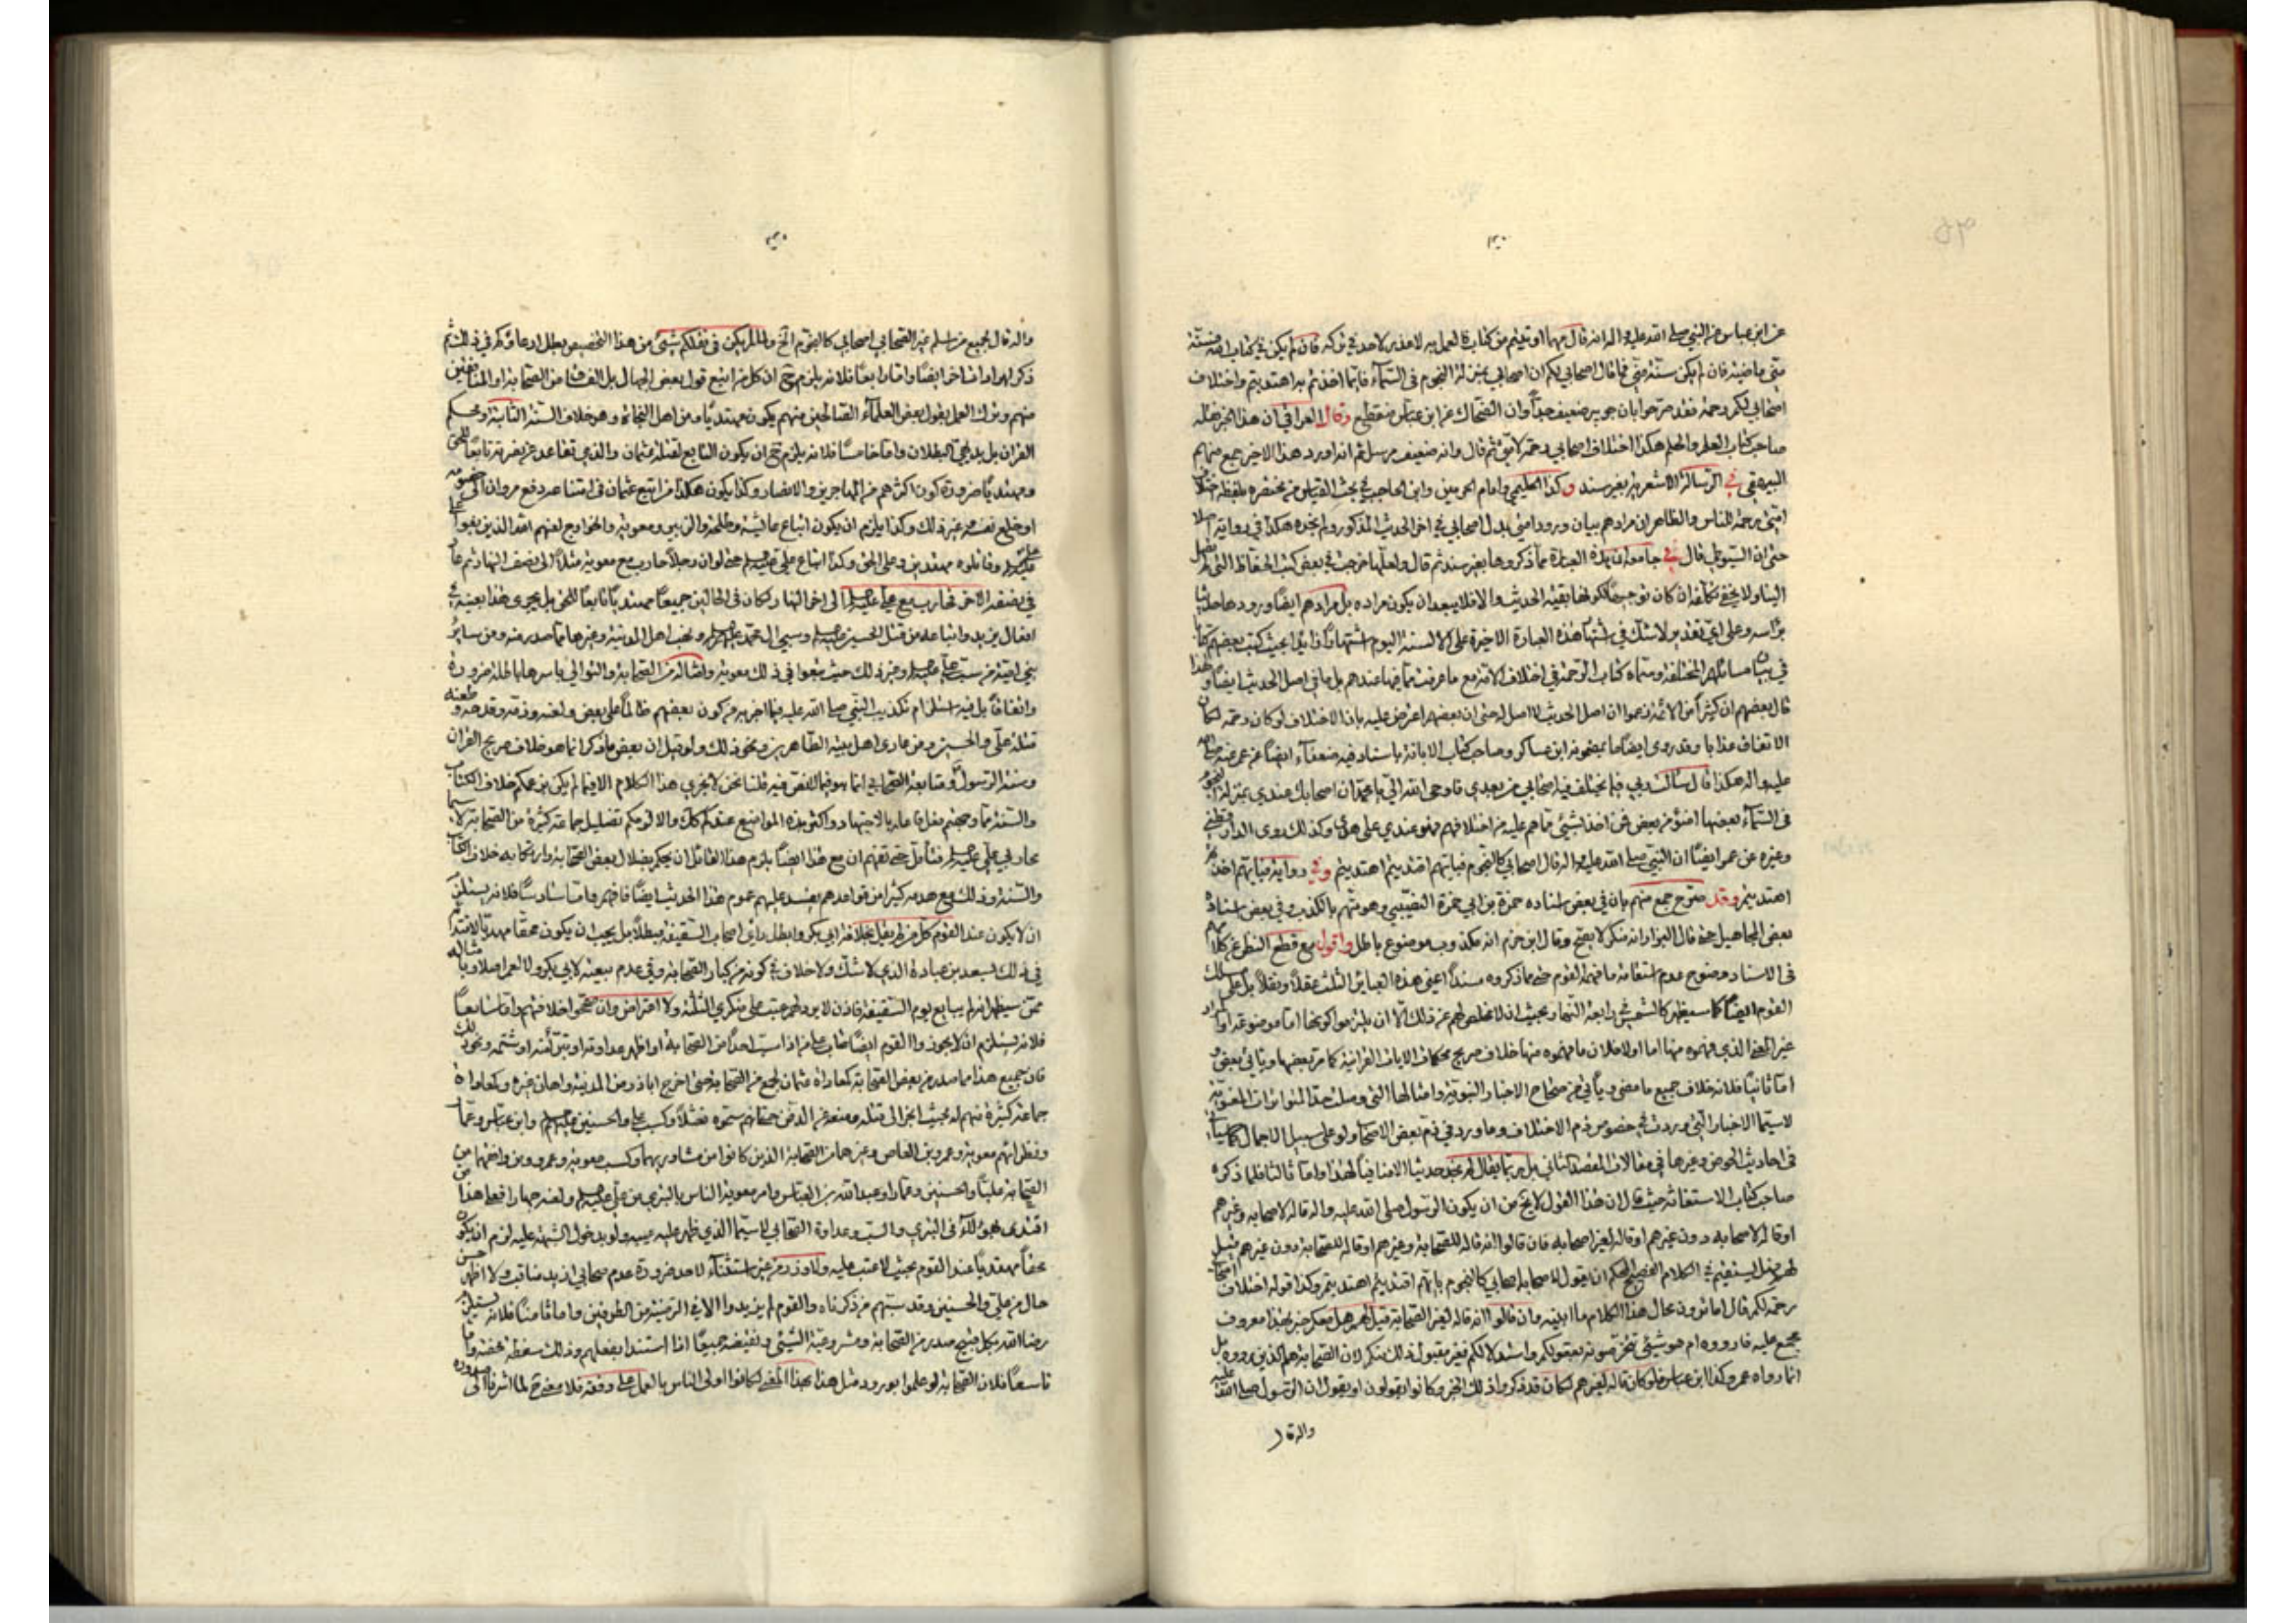 عن ابن عباس عن النبي صلى الله عليه واله انه قال مهما اوتيتم من كتاب فالعمل به لا عذر لاحد في تركه فان لم يكن في كتاب الله فسنة
مني ماضية فان لم يكن سنة مني فما قال اصحابي لكم ان اصحابي بمنزلة النجوم في السماء فايما اخذتم به اهتديتم واختلاف
اصحابي لكم رحمة فقد صرحوا بان جويبر ضعيف جدا وان الضحاك عن ابن عباس منقطع وقال العراقي ان هذا الخبر نقله
صاحب كتاب العلم والحلم هكذا اختلاف اصحابي رحمة لامتي ثم قال وانه ضعيف مرسل ثم انه اورد هذا الاخير جمع منهم
البيهقي في الرسالة الاشعرية بغير سند وكذا الحليمي وامام الحرمين وابن الحاجب في بحث القياس من مختصره بلفظ اختلاف
امتي رحمة للناس والظاهر ان مرادهم بيان ورود امتي بدل اصحابي في اخر الحديث المذكور ولم نجده هكذا في رواية اصلا
حتى ان السيوطي قال في جامعه ان هذه العبارة مما ذكروها بغير سند ثم قال ولعلها خرجت في بعض كتب الحفاظ التي لم تصل
الينا ولا يخفى تكلفه ان كان توجيها لكونها بقية الحديث والا فلا يبعد ان يكون مراده بل مرادهم ايضا ورودها حديثا
برأسه وعلى اي تقدير لا شك في اشتهار هذه العبارة الاخيرة على الالسنة اليوم اشتهارا زايدا بحيث كتب بعضهم كتابا
في بيان مسائلهم المختلفة وسماه كتاب الرحمة في اختلاف الامة مع ما عرفت مما فيها عندهم بل ما في اصل الحديث ايضا ولهذا
قال بعضهم ان كثيرا من الائمة زعموا ان اصل الحديث لا اصل له حتى ان بعضهم اعترض عليه بان الاختلاف لو كان رحمة لكان
الاتفاق عذابا وقد روى ايضا ما بمضمونه ابن عساكر وصاحب كتاب الابانة باسناد فيه ضعفاء ايضا عن عمر عنه صلى الله
عليه واله هكذا قال سألت ربي فيما يختلف فيه اصحابي من بعدي فاوحى الله الي يا محمد ان اصحابك عندي بمنزلة النجوم
في السماء بعضها اضوء من بعض فمن اخذ بشيء مما هم عليه من اختلافهم فهو عندي على هدى وكذلك روى الدارقطني
وغيره عن عمر ايضا ان النبي صلى الله عليه واله قال اصحابي كالنجوم فبايهم اقتديتم اهتديتم وفي رواية فبايهم اخذتم
اهتديتم وقد صرح جمع منهم بان في بعض اسناده حمزة بن ابي حمزة النصيبي وهو متهم بالكذب وفي بعض اسناده
بعض المجاهيل حتى قال البزار انه منكر لا يصح وقال ابن حزم انه مكذوب موضوع باطل واقول مع قطع النظر عن كلامهم
في الاسناد وضوح عدم استقامة ما فهمه القوم مما ذكروه مسندا اعني هذه العباير الثلث عقلا ونقلا بل على مسلك
القوم ايضا كما سيظهر كالشمس رابعة النهار بحيث ان لا مخلص لهم عن ذلك الا ان يلتزموا كونها اما موضوعة او
غير المعنى الذي فهموه منها اما اولا فلان ما فهموه منها خلاف صريح محكمات الايات القرانية كما مر بعضها وياتي بعض
اما ثانيا فلانه خلاف جميع ما مضى ويأتي من صحاح الاخبار النبوية وامثالها التي وصلت حد المتواترات المعنوية
لا سيما الاخبار التي وردت في خصوص ذم الاختلاف وما ورد في ذم بعض الاصحاب ولو على سبيل الاجمال كما سيأتي
في احاديث الحوض وغيرها في مقالات المقصد الثاني بل ربما يقال لم نجد حديثا الا منافيا لهذا واما ثالثا فلما ذكره
صاحب كتاب الاستغاثة حيث قال ان هذا القول لا يخ من ان يكون الرسول صلى الله عليه واله قاله لاصحابه وغيرهم
او قاله لاصحابه دون غيرهم او قاله لغير اصحابه فان قالوا انه قاله للصحابة وغيرهم او قاله للصحابة دون غيرهم قيل
لهم هل يستقيم في الكلام الفصيح المحكم ان يقول لاصحابه اصحابي كالنجوم بايهم اقتديتم اهتديتم وكذا قوله اختلاف اصحابي
رحمة لكم قال اما ترون محال هذا الكلام ما ابينه وان قالوا انه قاله لغير الصحابة قيل لهم هل معكم خبر بهذا معروف
مجمع عليه فاوردوه ام هو شيئ تخرصونه بعقولكم واستدلالكم فغير مقبول ذلك منكم لان الصحابة هم الذين رووه بل
انما رواه عمر وكذا ابن عباس فلو كان قاله لغيرهم لكان قد ذكروا ذلك الخبر وكانوا يقولون او يقول ان الرسول صلى الله عليه
واله قال
واله قال لجميع من اسلم غير الصحابي اصحابي كالنجوم الخ ولما لم يكن في نقلكم شيئ من هذا التخصيص بطل ادعاؤكم في ذلك ثم
ذكر ايرادات اخر ايضا واما رابعا فلانه يلزم ح ان كل من اتبع قول بعض الجهال بل الفساق من الصحابة او المنافقين
منهم وترك العمل بقول بعض العلماء الصالحين منهم يكون مهتديا ومن اهل النجاة وهو خلاف السنة الثابتة ومحكم
القران بل بديهي البطلان واما خامسا فلانه يلزم ح ان يكون التابع لقتلة عثمان والذي تقاعد عن نصرته تابعا للحق
ومهتديا ضرورة كون اكثرهم من المهاجرين والانصار وكذا يكون هكذا من اتبع عثمان في امتناعه دفع مروان الى خصومه
او خلع نفسه وغير ذلك وكذا يلزم ان يكون اتباع عايشة وطلحة والزبير ومعوية والخوارج لعنهم الله الذين بغوا على
علي وقاتلوه مهتدين وعلى الحق وكذا اتباع علي حتى لو ان رجلا حارب مع معوية مثلا الى نصف النهار ثم عاد
في نصفه الاخر فحارب مع علي الى اخر النهار لكان في الحالين جميعا مهتديا تابعا للحق بل يجري هذا بعينه في
افعال يزيد واتباعه من قتل الحسين وسبي ال محمد ونهب اهل المدينة وغيرها مما صدر منه ومن ساير
بني امية من سب علي وغير ذلك حيث تبعوا في ذلك معوية وامثاله من الصحابة والتوالي باسرها باطلة ضرورة
واتفاقا بل فيه استلزام تكذيب النبي صلى الله عليه فيما اخبر به من كون بعضهم ظالما على بعض ولعنه وذمه وقدحه وطعنه
قتلة علي والحسين ومن عادى اهل بيته الطاهرين ونحو ذلك ولو قيل ان بعض ما ذكر انما هو خلاف صريح القران
وسنة الرسول ومتابعة الصحابي انما هو فيما لا نص فيه قلنا نحن لا نجري هذا الكلام الا فيما لم يكن بزعمكم خلاف الكتاب
والسنة مما وجهتم فعل فاعله بالاجتهاد واكثر هذه المواضع عندكم كك والا لزمكم تضليل جماعة كثيرة من الصحابة لا سيما
محاربي علي فتأمل حتى تفهم ان مع هذا ايضا يلزم هذا القائل ان يحكم بضلال بعض الصحابة وارتكابه خلاف الكتاب
والسنة وذلك مع هدمه كثيرا من قواعدهم يفسد عليهم عموم هذا الحديث ايضا فافهم واما سادسا فلانه يستلزم
ان لا يكون عند القوم كل من لم يقبل بخلافة ابي بكر وابطل راي اصحاب السقيفة مبطلا بل يجب ان يكون محقا مهديا لاقتدائه
في ذلك لسعد بن عبادة الذي لا شك ولا خلاف في كونه من كبار الصحابة وفي عدم بيعته لابي بكر ولا لعمر اصلا وبامثاله
ممن سيظهر انه لم يبايع يوم السقيفة فاذن لا يرد لهم عتب على منكري الثلثة ولا اعتراض وان صححوا خلافتهم واما سابعا
فلانه يستلزم ان لا يجوزوا القوم ايضا عتاب على من اذا سب احدا من الصحابة او اظهر عداوته او تبرّأ منه او شتمه ونحو ذلك
فان جميع هذا مما صدر من بعض الصحابة كمعاداة عثمان لجمع من الصحابة حتى اخرج اباذر من المدينة واهان غيره وكمعاداة
جماعة كثيرة منهم له بحيث انجر الى قتله ومنعه عن الدفن حتى انهم سموه نعثلا وكسب علي والحسنين وابن عباس وعمار
ونظرائهم معوية وعمرو بن العاص وغيرهما من الصحابة الذين كانوا من مشاوريهما وكسب معوية وعمرو ومن واخهما من
الصحابة عليا والحسنين وعمارا وعبد الله بن العباس وامر معوية الناس بالتبري من علي ولعنه جهارا فعلى هذا من
اقتدى بهؤلاء في التبري والسب وعداوة الصحابي لا سيما الذي ظهر عليه عيب ولو بدخول الشبهة عليه لزم ان يكون
محقا مهتديا عند القوم بحيث لا عتب عليه ولا وزر من غير استثناء لاحد ضرورة عدم صحابي ازيد مناقب ولا اظهر حسن
حال من علي والحسنين وقد سبهم من ذكرناه والقوم لم يزيدوا الا في الترضية من الطرفين واما ثامنا فلانه يستلزم
رضا الله بكل قبيح صدر من الصحابة ومشروعية الشيئ ونقيضه جميعا اذا استندا بفعلهم وذلك سفطة محضة واما
تاسعا فلان الصحابة لو علموا بورود مثل هذا بهذا المعنى لكانوا اولى الناس بالعمل على وفقه فلا معنى ح لما اشرنا الى صدوره